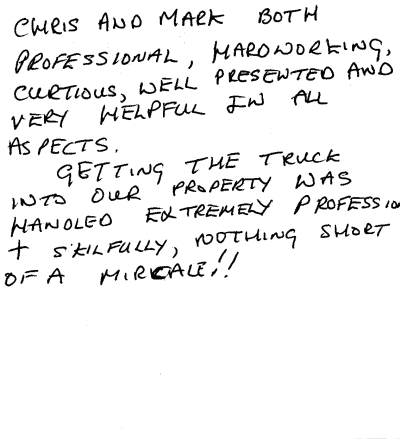 CHRIS AND MARK BOTH
PROFESSIONAL, HARDWORKING,
CURTIOUS, WELL PRESENTED AND
VERY HELPFUL IN ALL
ASPECTS.
GETTING THE TRUCK
INTO OUR PROPERTY WAS
HANDLED EXTREMELY PROFESSIO
+ SKILFULLY, NOTHING SHORT
OF A MIRCALE!!